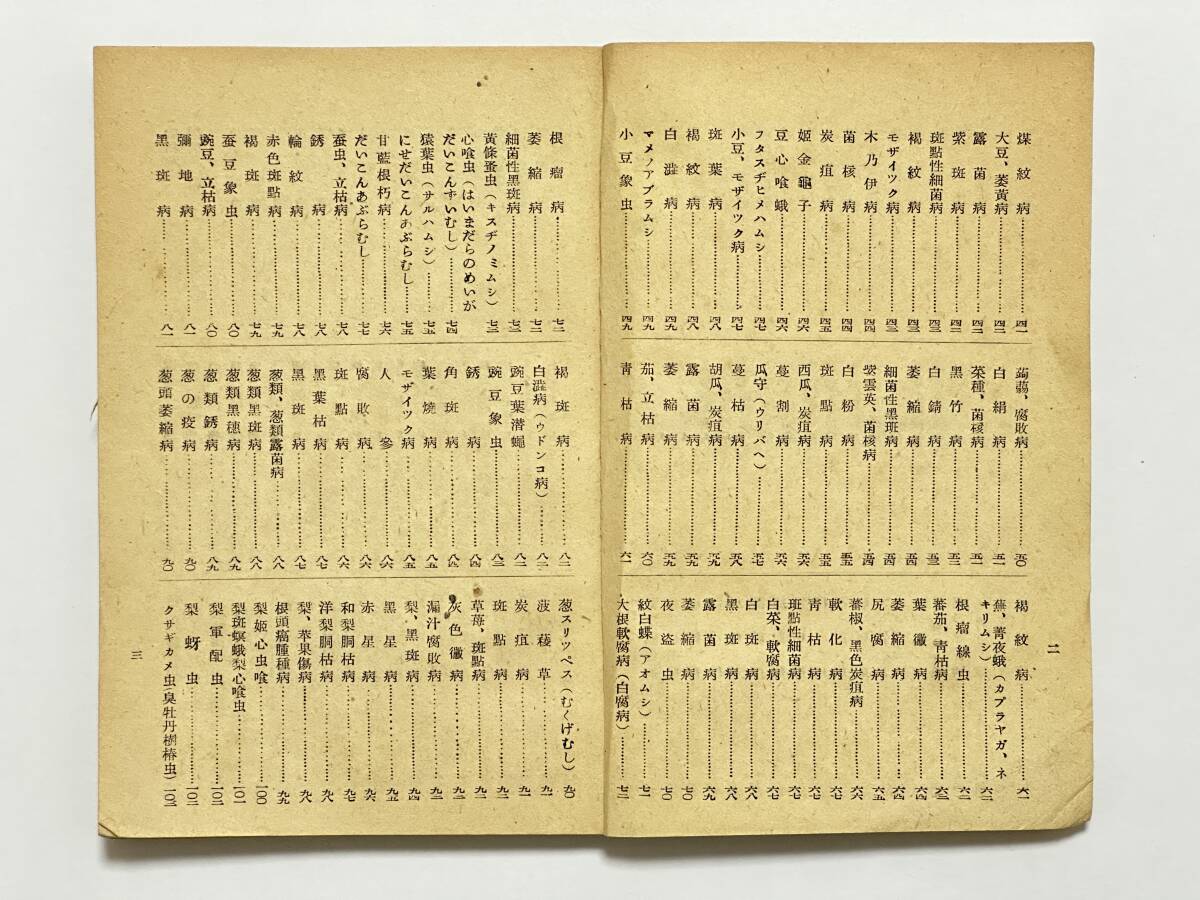 二
煤紋病…四一
大豆、萎黃病…四二
露菌病…四二
紫斑病…四二
斑點性細菌病…四三
褐紋病…四三
モザイツク病…四三
木乃伊病…四四
菌核病…四四
炭疽病…四五
姬金龜子…四六
豆心喰蛾…四六
フタスヂヒメハムシ…四七
小豆、モザイツク病…四七
斑葉病…四八
褐紋病…四八
白澁病…四九
マメノアブラムシ…四九
小豆象虫…四九
蒟蒻、腐敗病…五〇
白絹病…五一
菜種、菌核病…五一
黑竹病…五二
白銹病…五三
萎縮病…五四
細菌性黑斑病…五四
紫雲英、菌核病…五四
白粉病…五五
斑點病…五五
西瓜、炭疽病…五六
蔓割病…五六
瓜守(ウリバヘ)…五七
蔓枯病…五八
胡瓜、炭疽病…五九
露菌病…五九
萎縮病…五九
茄、立枯病…六〇
青枯病…六一
褐紋病…六一
蕪、菁夜蛾(カブラヤガ、ネ
キリムシ)…六二
根瘤線虫…六二
蕃茄、青枯病…六三
葉黴病…六四
萎縮病…六四
尻腐病…六五
蕃椒、黑色炭疽病…六六
軟化病…六七
青枯病…六七
斑點性細菌病…六七
白菜、軟腐病…六七
白斑病…六八
黑斑病…六八
露菌病…六九
萎縮病…七〇
夜盜虫…七〇
紋白蝶(アオムシ)…七一
大根軟腐病(白腐病)…七二
根瘤病…七二
萎縮病…七二
細菌性黑斑病…七三
黃條蚤虫(キスヂノミムシ)…七三
心喰虫(はいまだらのめいが
だいこんずいむし)…七四
猿葉虫(サルハムシ)…七五
にせだいこんあぶらむし…七五
甘藍根朽病…七六
だいこんあぶらむし…七七
蚕虫、立枯病…七八
銹病…七八
輪紋病…七八
赤色斑點病…七九
褐斑病…七九
蚕豆象虫…八〇
豌豆、立枯病…八〇
彌地病…八一
黑斑病…八一
褐斑病…八二
白澁病(ウドンコ病)…八二
豌豆葉潛蠅…八二
豌豆象虫…八三
銹病…八四
角斑病…八四
葉燒病…八五
モザイツク病…八五
人參…八六
腐敗病…八六
斑點病…八六
黑葉枯病…八七
黑斑病…八七
葱類、葱類露菌病…八八
葱類黑斑病…八八
葱類黑穗病…八九
葱類銹病…八九
葱の疫病…九〇
葱頭萎縮病…九〇
葱スリツペス(むくげむし)…九〇
菠薐草…九一
炭疽病…九一
斑點病…九一
草苺、斑點病…九二
灰色黴病…九三
漏汁腐敗病…九三
梨、黑斑病…九四
黑星病…九五
赤星病…九六
和梨胴枯病…九七
洋梨胴枯病…九八
梨、苹果傷病…九八
根頭癌腫種病…九九
梨姬心虫喰…一〇〇
梨斑螟蛾梨心喰虫…一〇一
梨軍配虫…一〇二
梨蚜虫…一〇三
クサギカメ虫(臭牡丹樹椿虫)…一〇三
三